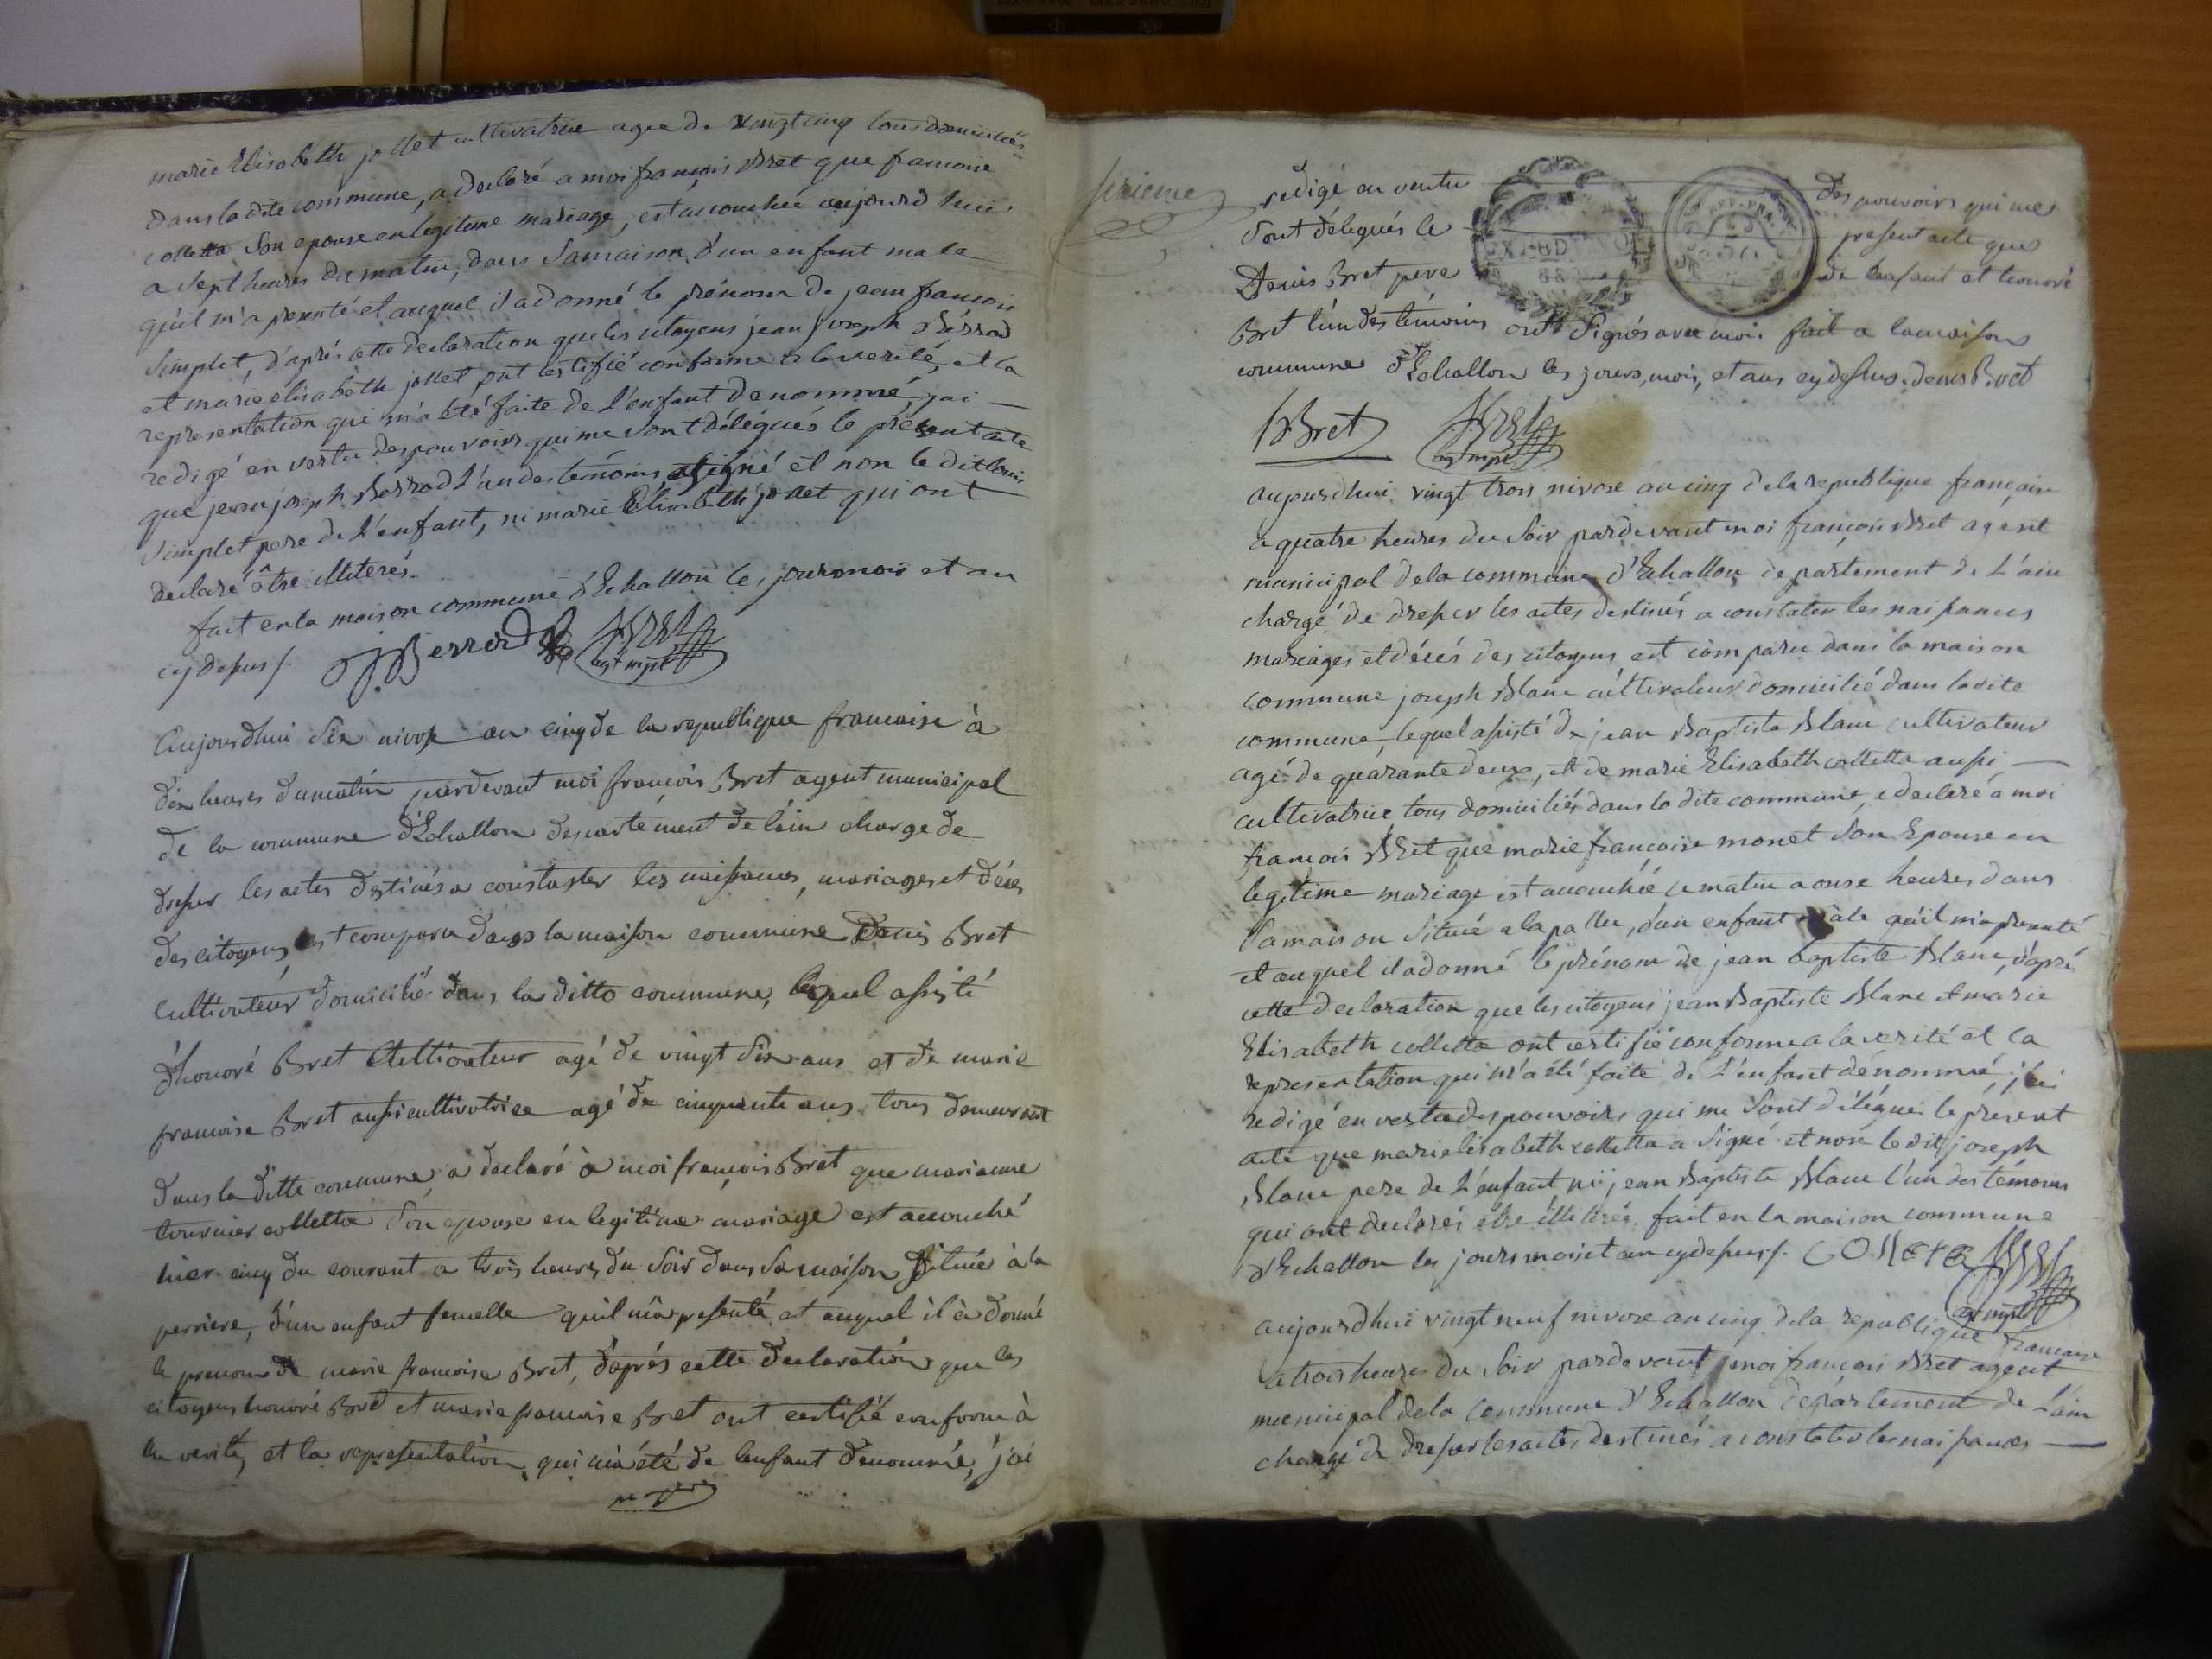 marie Elisabeth jollet cultivatrice agée de vingt cinq tous domiciliés
dans la dite commune, a declaré a moi françois Bret que francoise
colletta son epouse en legitime mariage, est accouchée aujourd huie
a sept heures du matin, dans sa maison d'un enfant male
qu'il m'a presenté et auquel il a donné le prénom de jean francois
Simplet, d'aprés cette declaration que les citoyens jean joseph Berrod
et marie elisabeth jollet ont certifié conforme a la verité, et la
representation qui m'a été faite de l'enfant denommé, j'ai
redigé en vertu des pouvoirs qui me sont délégués le présent acte
que jean joseph Berrod l'un des temoins, a signé et non le dit louis
Simplet pere de l'enfant, ni marie Elisabeth jollet qui ont
declaré être illiterés.
fait en la maison commune d'Echallon les jour mois et an
cy dessus/. jjBerrod Bret
agt mpl
Aujourdhui six nivose an cinq de la republique francaise à
dix heures du matin pardevant moi francois Bret agent municipal
de la commune d'Echallon departement de lain charge de
dresser les actes destinés a constaster les naissances, mariages et décés
des citoyens, est comparu dans la maison commune Denis Bret
cultivateur domicilié dans la ditte commune, lequel assisté
d'honoré Bret Cultivateur agé de vingt six ans et de marie
francoise Bret aussi cultivatrice agé de cinquante ans tous demeurant
dans la ditte commune a declaré à moi françois Bret que marianne
tournier colletta son epouse en legitime mariage est accouché
hier cinq du courant a trois heures du soir dans sa maison située à la
perriere, d'un enfant femelle quil m'a presenté et auquel il à donné
le prenom de marie francoise Bret, d'aprés cette declaration que les
citoyens honoré Bret et marie francoise Bret ont certifié conforme à
la verité, et la representation qui m'a été de lenfant denommé, j'ai
redigé en vertu des pouvoirs qui me
sont délegués le present acte que
Denis Bret pere de lenfant et honoré
Bret l'un des témoins ont signés avec moi fait a la maison
commune d'Echallon les jours, mois, et ans cy dessus. denis Bret
hBret Bret
agt mpl
aujourdhui vingt trois nivose an cinq de la republique française
a quatre heures du soir pardevant moi françois Bret agent
municipal de la commune d'Echallon departement de l'ain
chargé de dresser les actes destinés a constater les naissances
mariages et décés des citoyens est comparu dans la maison
commune joseph Blanc cultivateur domicilié dans la dite
commune, lequel assisté de jean Baptiste Blanc cultivateur
agé de quarante deux, et de marie Elisabeth colletta aussi
cultivatrice tous domiciliés dans la dite commune, a declaré a moi
francois Bret que marie francoise monet son Epouse en
legitime mariage est accouchée ce matin a onse heures dans
sa maison située a la pallu, d'un enfant male qu'il m'a presenté
et auquel il a donné le prénom de jean baptiste Blanc, d'aprés
cette declaration que les citoyens jean Baptiste Blanc et marie
Elisabeth colletta ont certifié conforme a la verité et la
representation qui m'a été faite de l'enfant dénommé, j'ai
redigé en vertu des pouvoirs qui me sont délégués le présent
acte que marie elisabeth colletta a signé et non le dit joseph
Blanc pere de l'enfant ni jean Baptiste Blanc l'un des témoins
qui ont declarés être illitérés, fait en la maison commune
d'Echallon les jours mois et an cy dessus/. COlleta Bret
agt mpl
aujourdhui vingt neuf nivose an cinq de la republique francaise
a trois heures du soir pardevant moi francois Bret agent
municipal de la commune d'Echallon departement de l'ain
chargé de dresser les actes destinés a constater les naissances